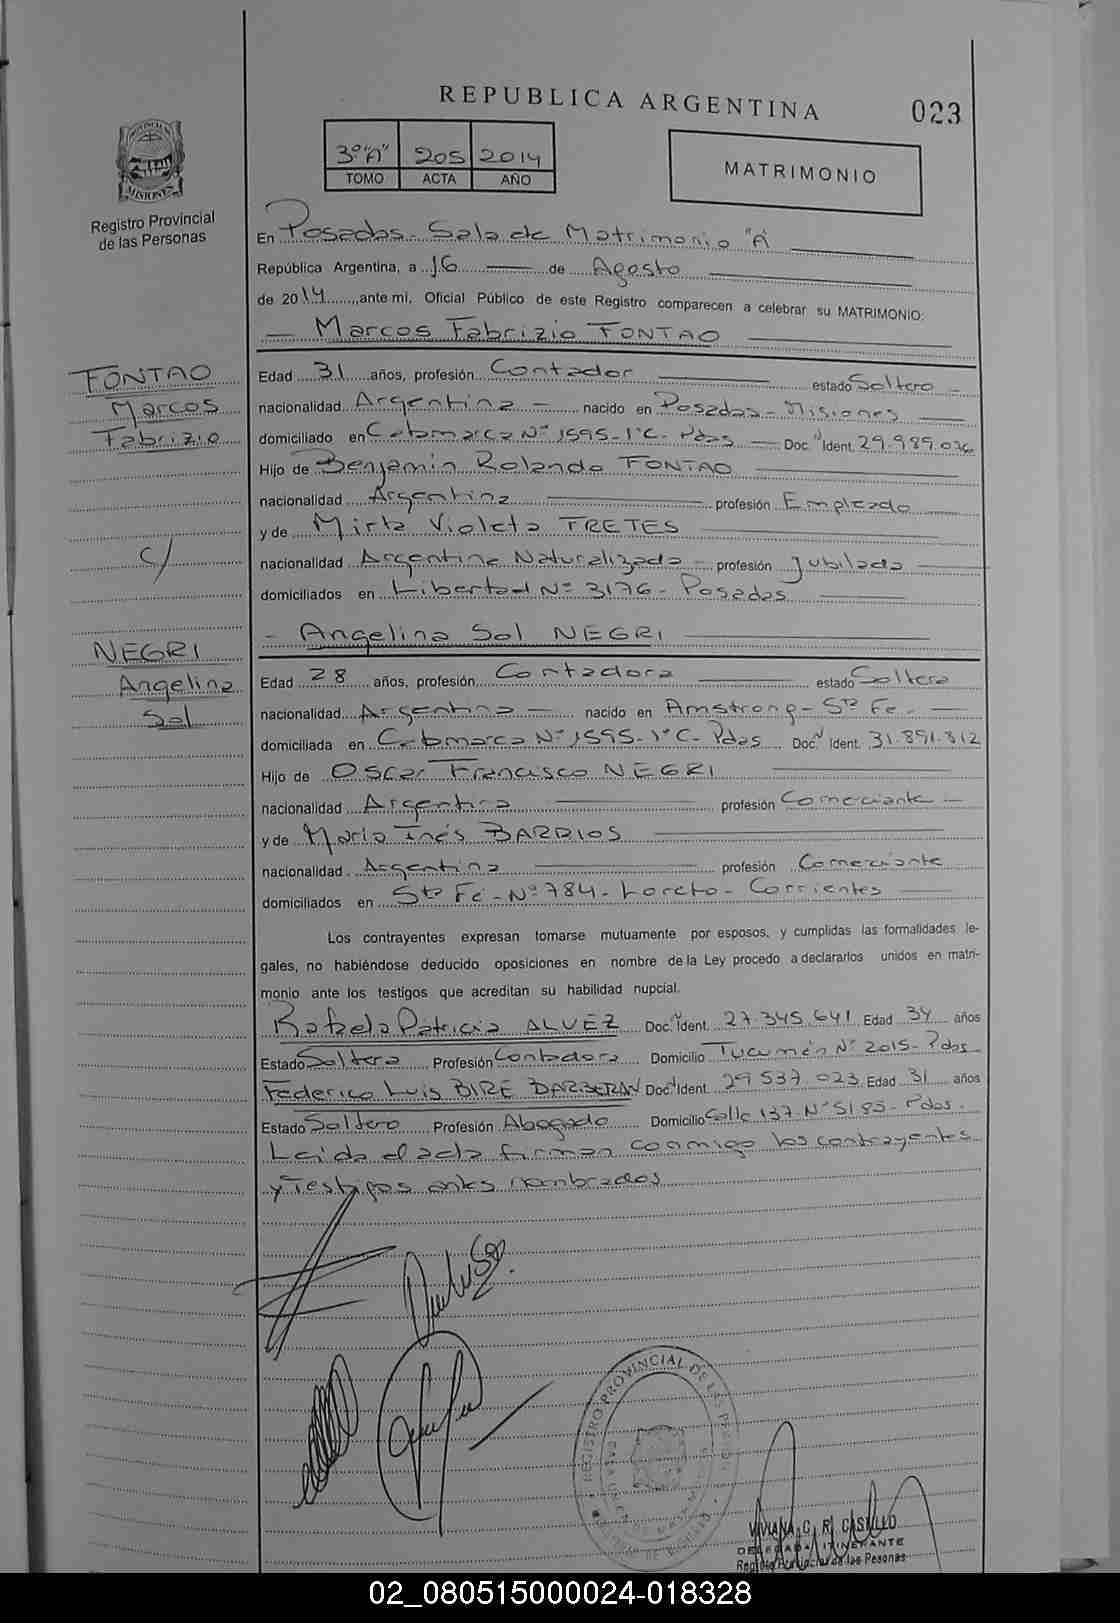 REPUBLICA ARGENTINA
023
3º "A" 205 2014
TOMO ACTA AÑO
MATRIMONIO
PROVINCIA DE MISIONES
Registro Provincial
de las Personas
En Posadas - Sala de Matrimonio "A"
República Argentina, a 16 de Agosto
de 2014, ante mi, Oficial Público de este Registro comparecen a celebrar su MATRIMONIO:
Marcos Fabrizio FONTAO
FONTAO
Marcos
Fabrizio
c/
NEGRI
Angelina
Sol
Edad 31 años, profesión Contador estado Soltero
nacionalidad Argentina nacido en Posadas - Misiones
domiciliado en Catamarca Nº 1595 - 1º C - Pdas Doc. Ident. 29.989.036
Hijo de Benjamin Rolando FONTAO
nacionalidad Argentina profesión Empleado
y de Mirta Violeta TRETES
nacionalidad Argentina Naturalizada profesión Jubilada
domiciliados en Libertad Nº 3176 - Posadas
- Angelina Sol NEGRI
Edad 28 años, profesión Contadora estado Soltera
nacionalidad Argentina nacido en Amstrong - Sta Fe -
domiciliada en Catamarca Nº 1595 - 1º C - Pdas Doc. Ident. 31.891.812
Hijo de Oscar Francisco NEGRI
nacionalidad Argentina profesión Comerciante
y de María Inés BARRIOS
nacionalidad Argentina profesión Comerciante
domiciliados en Sta Fé - Nº 784 - Loreto - Corrientes
Los contrayentes expresan tomarse mutuamente por esposos, y cumplidas las formalidades le-
gales, no habiéndose deducido oposiciones en nombre de la Ley procedo a declararlos unidos en matri-
monio ante los testigos que acreditan su habilidad nupcial.
Rafaela Patricia ALVEZ Doc. Ident. 27.345.641 Edad 34 años
Estado Soltera Profesión Contadora Domicilio Tucumán Nº 2015 - Pdas
Federico Luis BIRE BARBERAN Doc. Ident. 29.537.023 Edad 31 años
Estado Soltero Profesión Abogado Domicilio Calle 137 Nº 5185 - Pdas.
Leida el acta firman conmigo los contrayentes
y Testigos antes nombrados
REGISTRO PROVINCIAL DE LAS PERSONAS
VIVIANA C. R. CASTILLO
DELEGADA ITINERANTE
Registro Provincial de las Pesonas
02_080515000024-018328